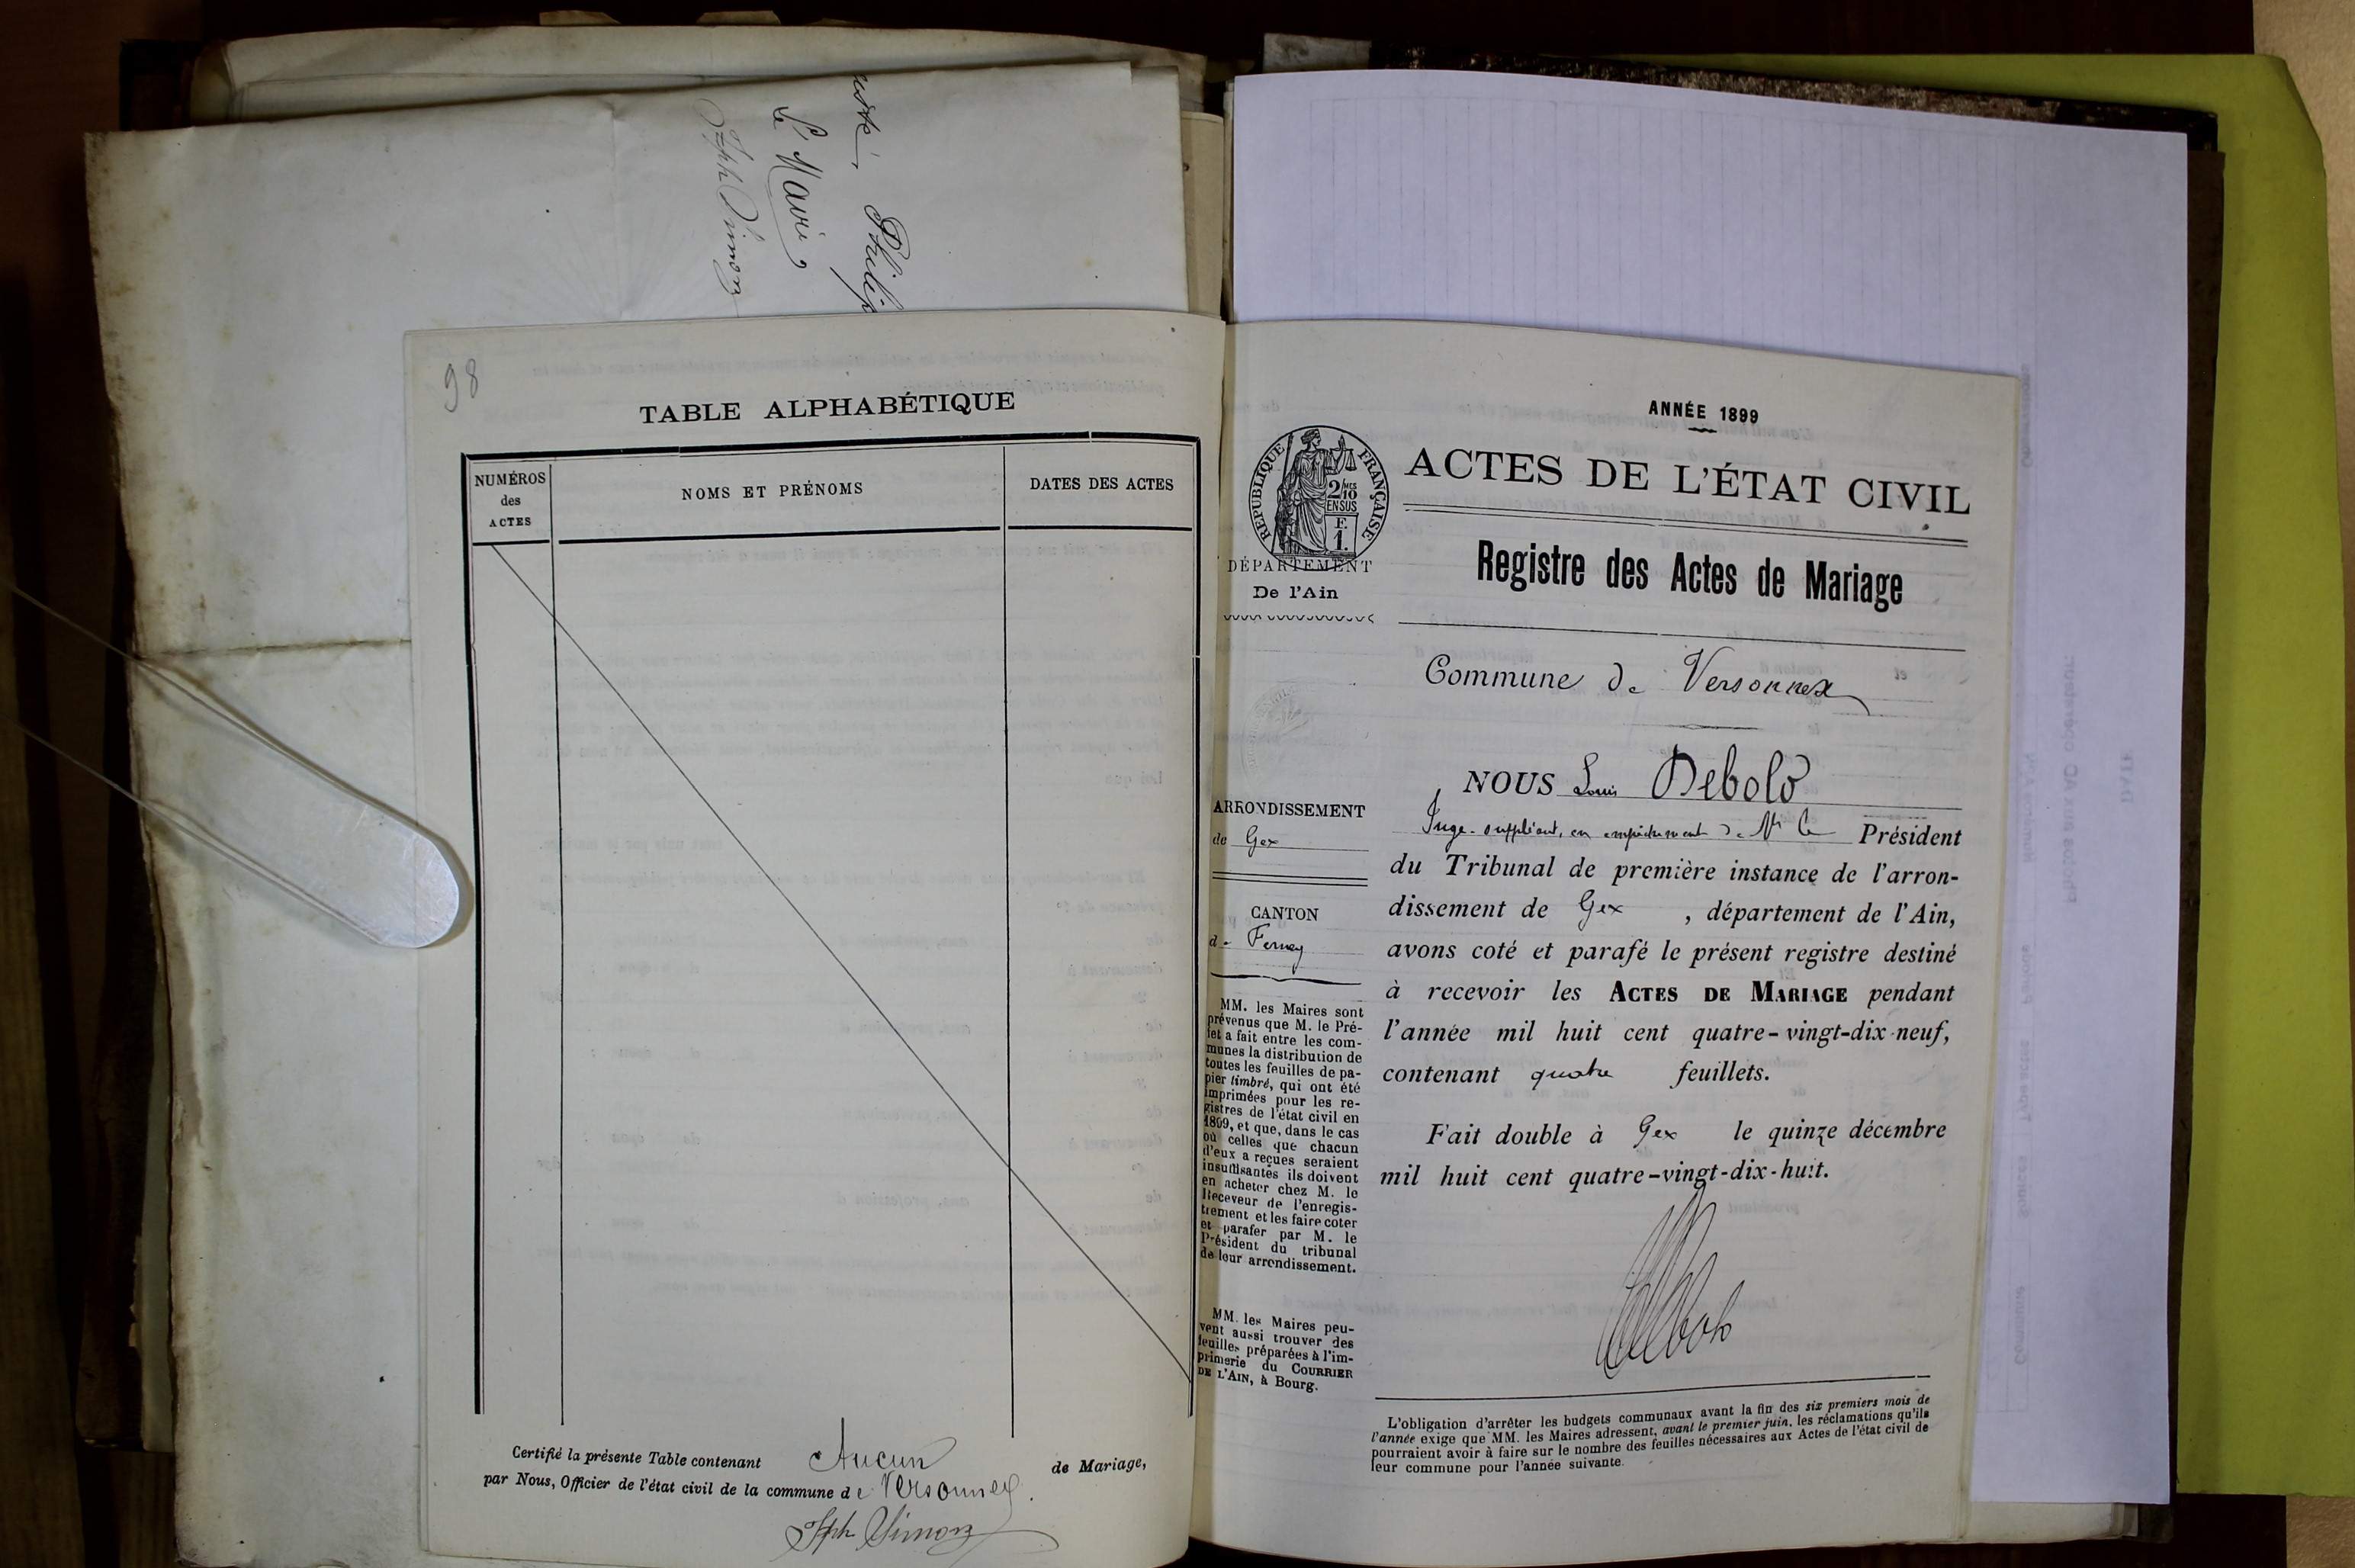 Philip
Le Maire
Jph Simon
98
TABLE ALPHABÉTIQUE
NUMÉROS
des
ACTES
NOMS ET PRÉNOMS
DATES DES ACTES
Certifié la présente Table contenant Aucun de Mariage,
par Nous, Officier de l'état civil de la commune de Versonnex.
Jph Simon
ANNÉE 1899
RÉPUBLIQUE FRANÇAISE
2/10
EN SUS
F.
1.
ACTES DE L'ÉTAT CIVIL
DÉPARTEMENT
De l'Ain
Registre des Actes de Mariage
Commune de Versonnex
ARRONDISSEMENT
de Gex
CANTON
de Ferney
MM. les Maires sont
prévenus que M. le Pré-
fet a fait entre les com-
munes la distribution de
toutes les feuilles de pa-
pier timbré, qui ont été
imprimées pour les re-
gistres de l'état civil en
1899, et que, dans le cas
où celles que chacun
d'eux a reçues seraient
insuffisantes ils doivent
en acheter chez M. le
Receveur de l'enregis-
trement et les faire coter
et parafer par M. le
Président du tribunal
de leur arrondissement.
MM. les Maires peu-
vent aussi trouver des
feuilles préparées à l'im-
primerie du COURRIER
DE L'AIN, à Bourg.
NOUS Louis Debolo
Juge-suppléant, en empêchement de Mr le Président
du Tribunal de première instance de l'arron-
dissement de Gex, département de l'Ain,
avons coté et parafé le présent registre destiné
à recevoir les ACTES DE MARIAGE pendant
l'année mil huit cent quatre-vingt-dix-neuf,
contenant quatre feuillets.
Fait double à Gex le quinze décembre
mil huit cent quatre-vingt-dix-huit.
L'obligation d'arrêter les budgets communaux avant la fin des six premiers mois de
l'année exige que MM. les Maires adressent, avant le premier juin, les réclamations qu'ils
pourraient avoir à faire sur le nombre des feuilles nécessaires aux Actes de l'état civil de
leur commune pour l'année suivante.